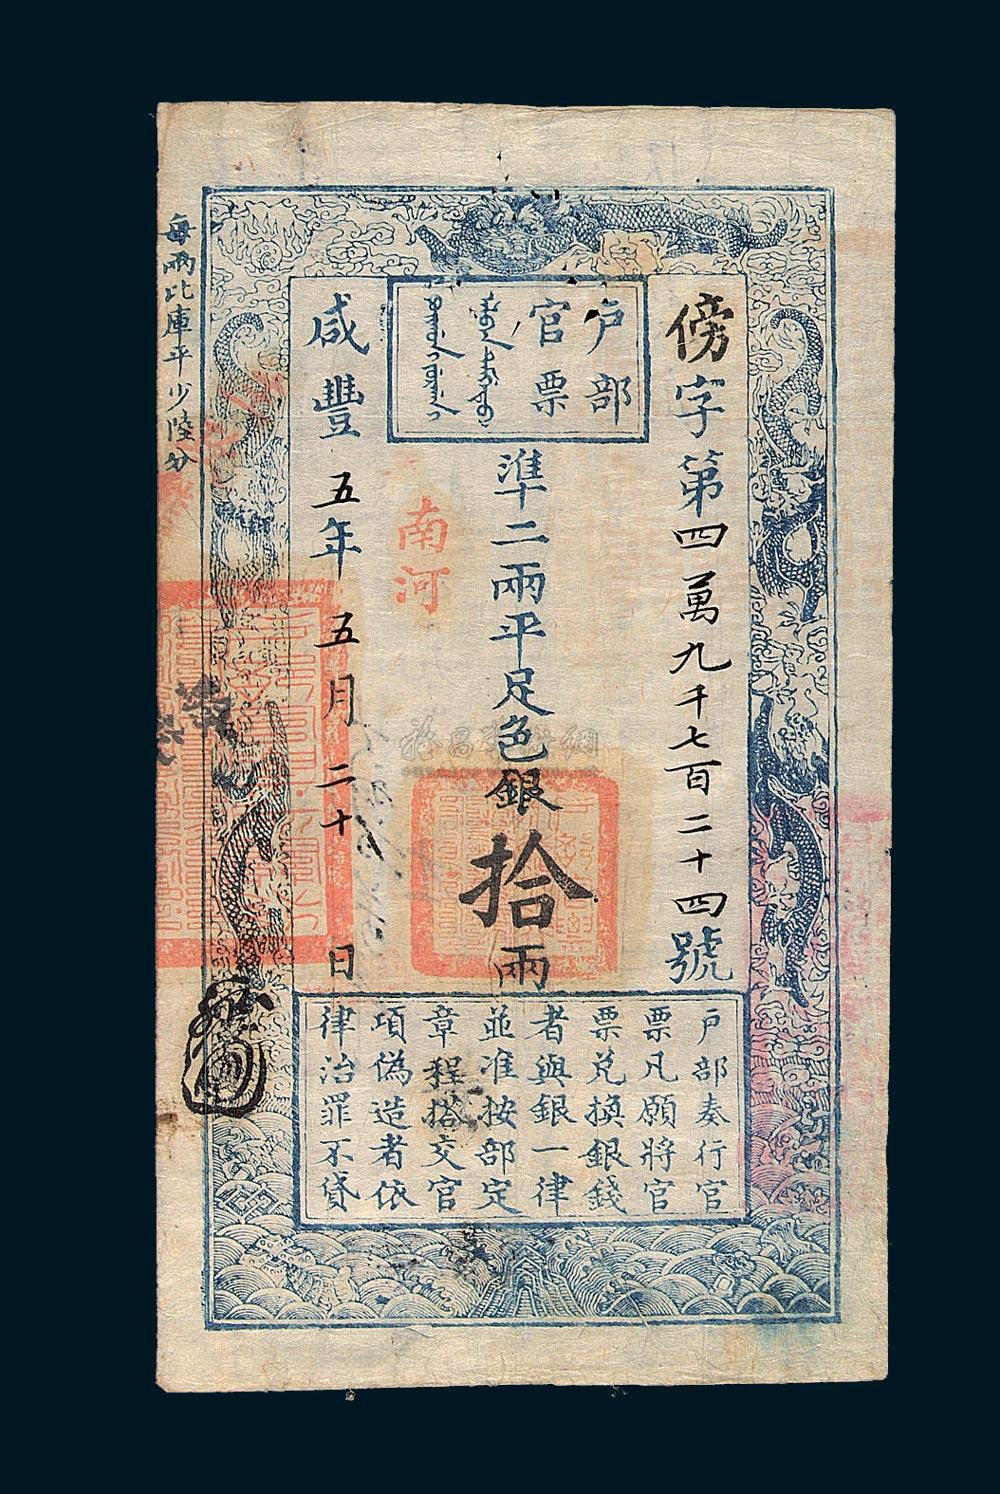 傍字第四萬九千七百二十四號
戶部
官票
準二兩平足色銀拾兩
南河
咸豐五年五月二十日
每兩比庫平少陸分
戶部奏行官
票凡願將官
票兌換銀錢
者與銀一律
並准按部定
章程搭交官
項偽造者依
律治罪不貸